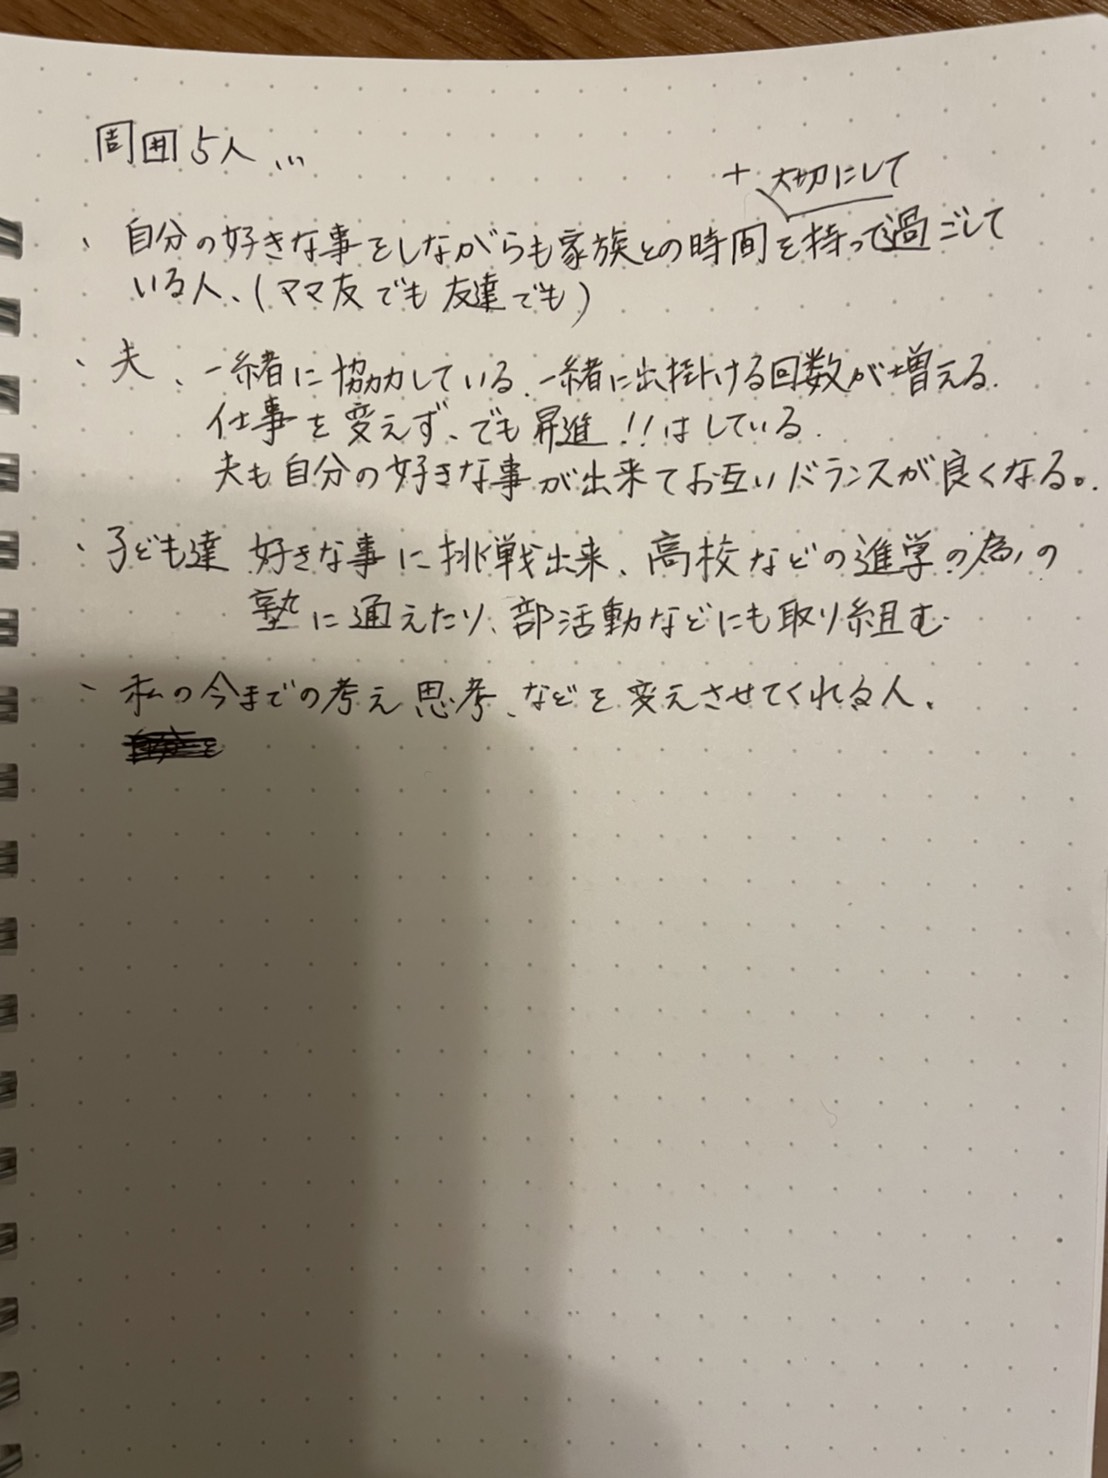 周囲5人...
+ 大切にして
、自分の好きな事をしながらも家族との時間を持って過ごして
いる人、(ママ友でも友達でも)
、夫、一緒に協力している。一緒に出掛ける回数が増える。
仕事を変えず、でも昇進!!はしている。
夫も自分の好きな事が出来てお互いバランスが良くなる。
、子ども達 好きな事に挑戦出来、高校などの進学の為の
塾に通えたり、部活動などにも取り組む
、私の今までの考え思考、などを変えさせてくれる人。